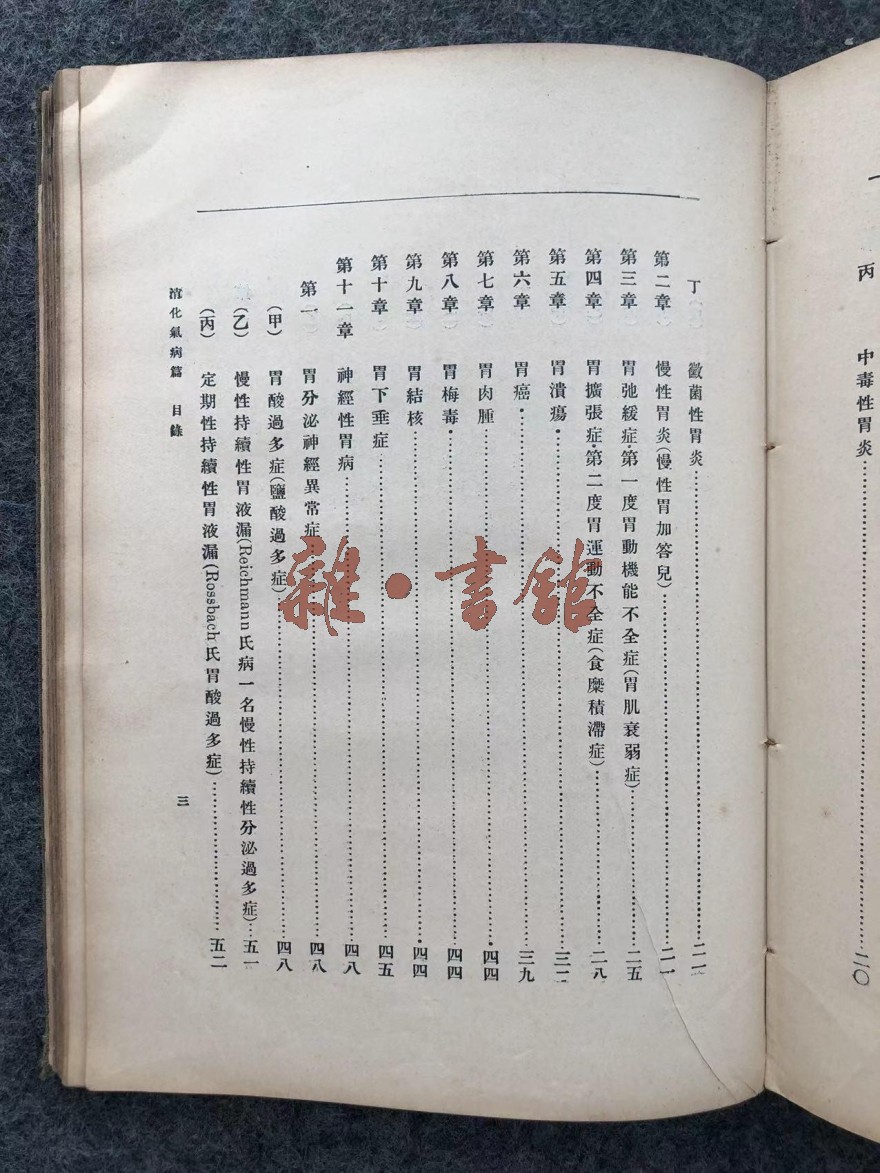 丙 中毒性胃炎……二〇
丁 黴菌性胃炎……二一
第二章 慢性胃炎(慢性胃加答兒)……二一
第三章 胃弛緩症・第一度胃動機能不全症(胃肌衰弱症)……二五
第四章 胃擴張症・第二度胃運動不全症(食糜積滯症)……二八
第五章 胃潰瘍……三二
第六章 胃癌……三九
第七章 胃肉腫……四四
第八章 胃梅毒……四四
第九章 胃結核……四四
第十章 胃下垂症……四五
第十一章 神經性胃病……四八
第一 胃分泌神經異常症……四八
(甲) 胃酸過多症(鹽酸過多症)……四八
(乙) 慢性持續性胃液漏(Reichmann氏病一名慢性持續性分泌過多症)……五一
(丙) 定期性持續性胃液漏(Rossbach氏胃酸過多症)……五二
消化氣病篇 目錄 三
雜・書館